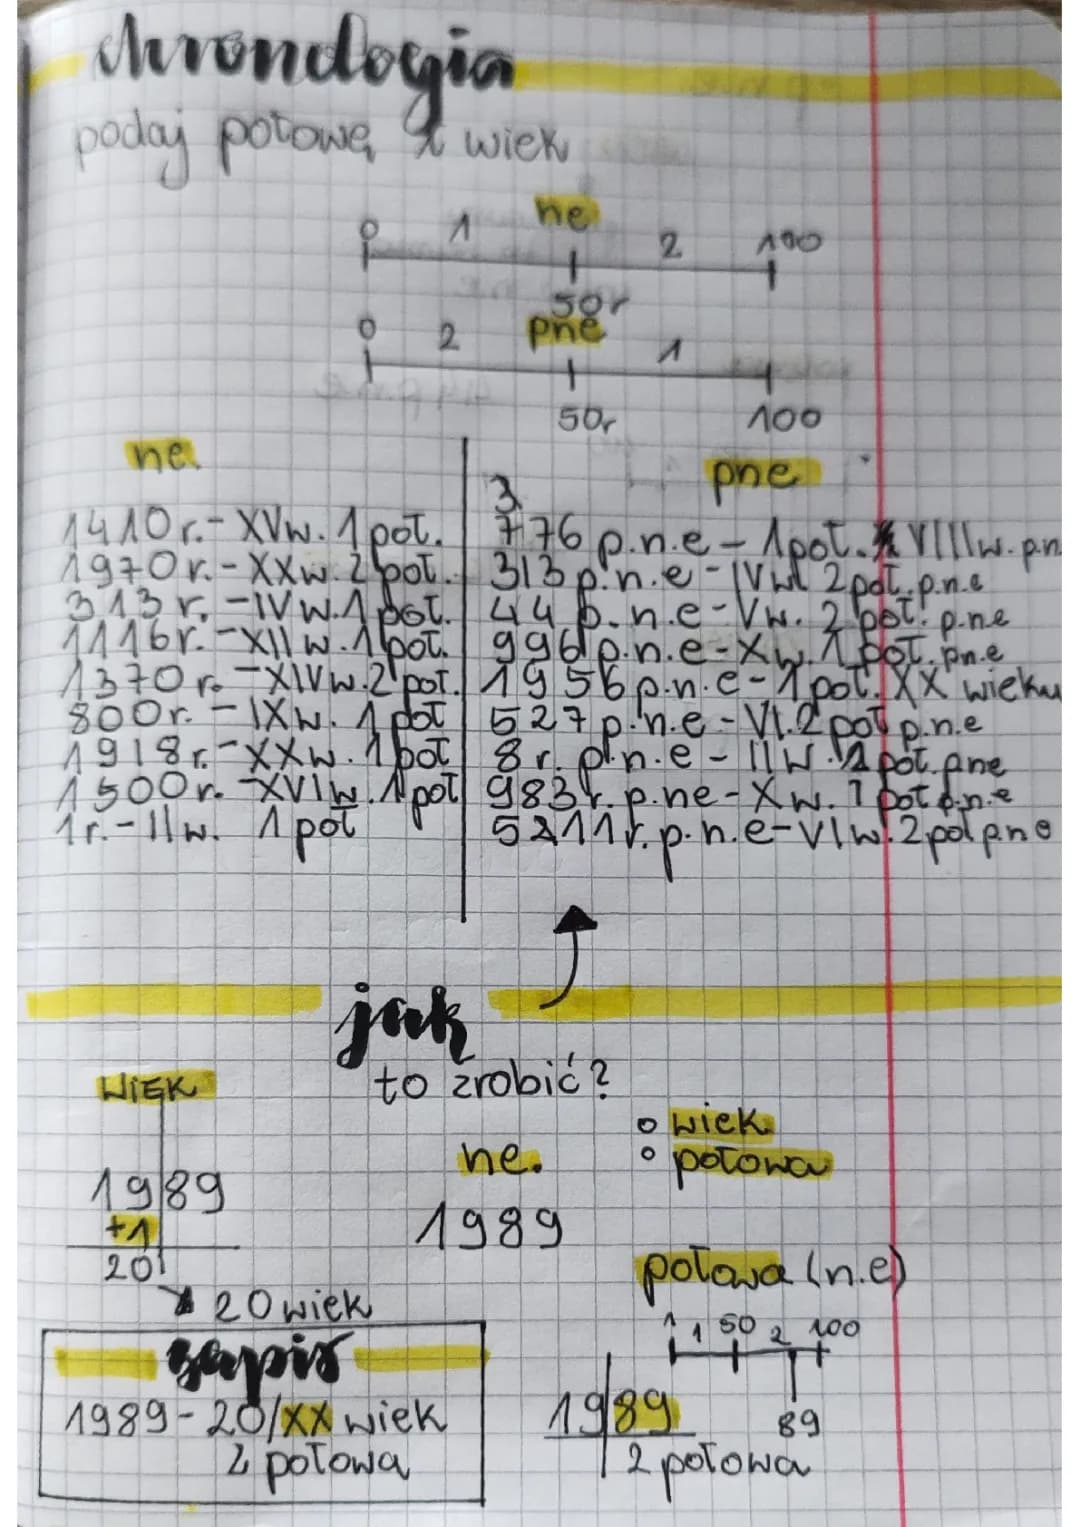 chronologia
podaj połowę i wiek
ne
0 1 2 100
50r
pne
0 2 1
50r 100
ne.
1410 r. - XVw. 1 poł.
1970 r. - XXw. 2 poł.
313 r. - IV w. 1 poł.
1116 r. - XII w. 1 poł.
1370 r. - XIV w. 2 poł.
800 r. - IX w. 1 poł
1918 r. - XX w. 1 poł
1500 r. - XVI w. 1 poł
1 r. - II w. 1 poł
pne
3
776 p.n.e - 1 poł. VIII w. p.n
313 p.n.e - IV w 2 poł. p.n.e
44 p.n.e - V w. 2 poł. p.n.e
996 p.n.e - X w. 1 poł. pn.e
1956 p.n.e - 1 poł. XX wieku
527 p.n.e - VI. 2 poł p.n.e
8 r. p.n.e - II w. poł. pne
983 r. p.ne - X w. 1 poł p.n.e
5211 r. p.n.e - VI w. 2 poł p.n.e
jak
to zrobić?
WIEK
1989
+1
20
20 wiek
ne.
1989
wiek
połowa
zapis
1989 - 20/XX wiek
2 połowa
połowa (n.e)
1 1 50 2 100
89
1989
2 połowa